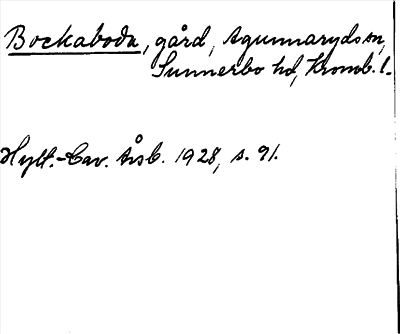 Bockaboda, gård, Agunnaryds sn,
Sunnerbo hd, Kronob. l.
Hylt.-Cav. Årsb. 1928, s. 91.